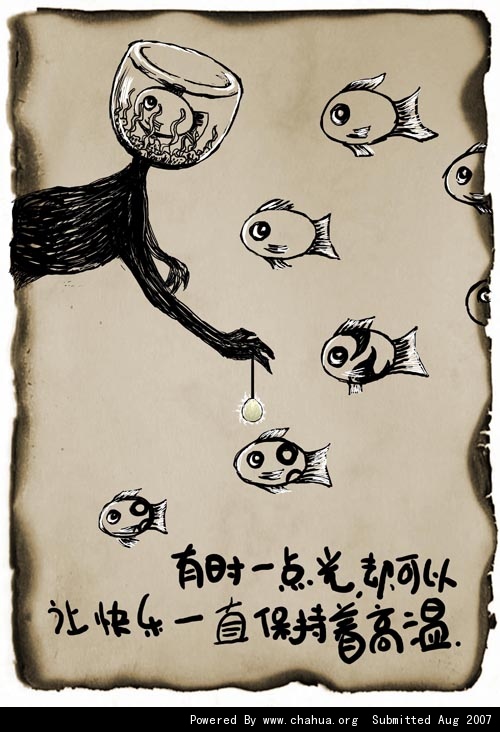 有时一点光,却可以
让快乐一直保持着高温.
Powered By www.chahua.org Submitted Aug 2007